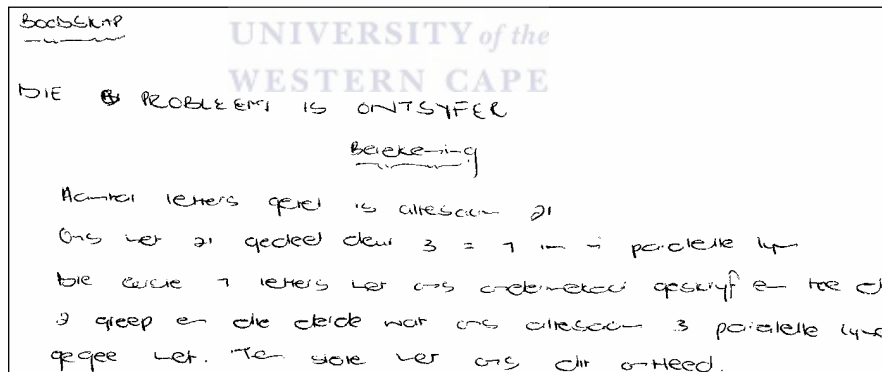 BOODSKAP
UNIVERSITY of the
WESTERN CAPE
DIE PROBLEEM IS ONTSYFER
Berekening
Aantal letters getel is altesaam 21
Ons het 21 gedeel deur 3 = 7 in 'n paralelle lyn
Die eerste 7 letters het ons onder mekaar geskryf en toe die
2 groep en die derde wat ons altesaam 3 paralelle lyne
gegee het. Ten slote het ons dit ontleed.